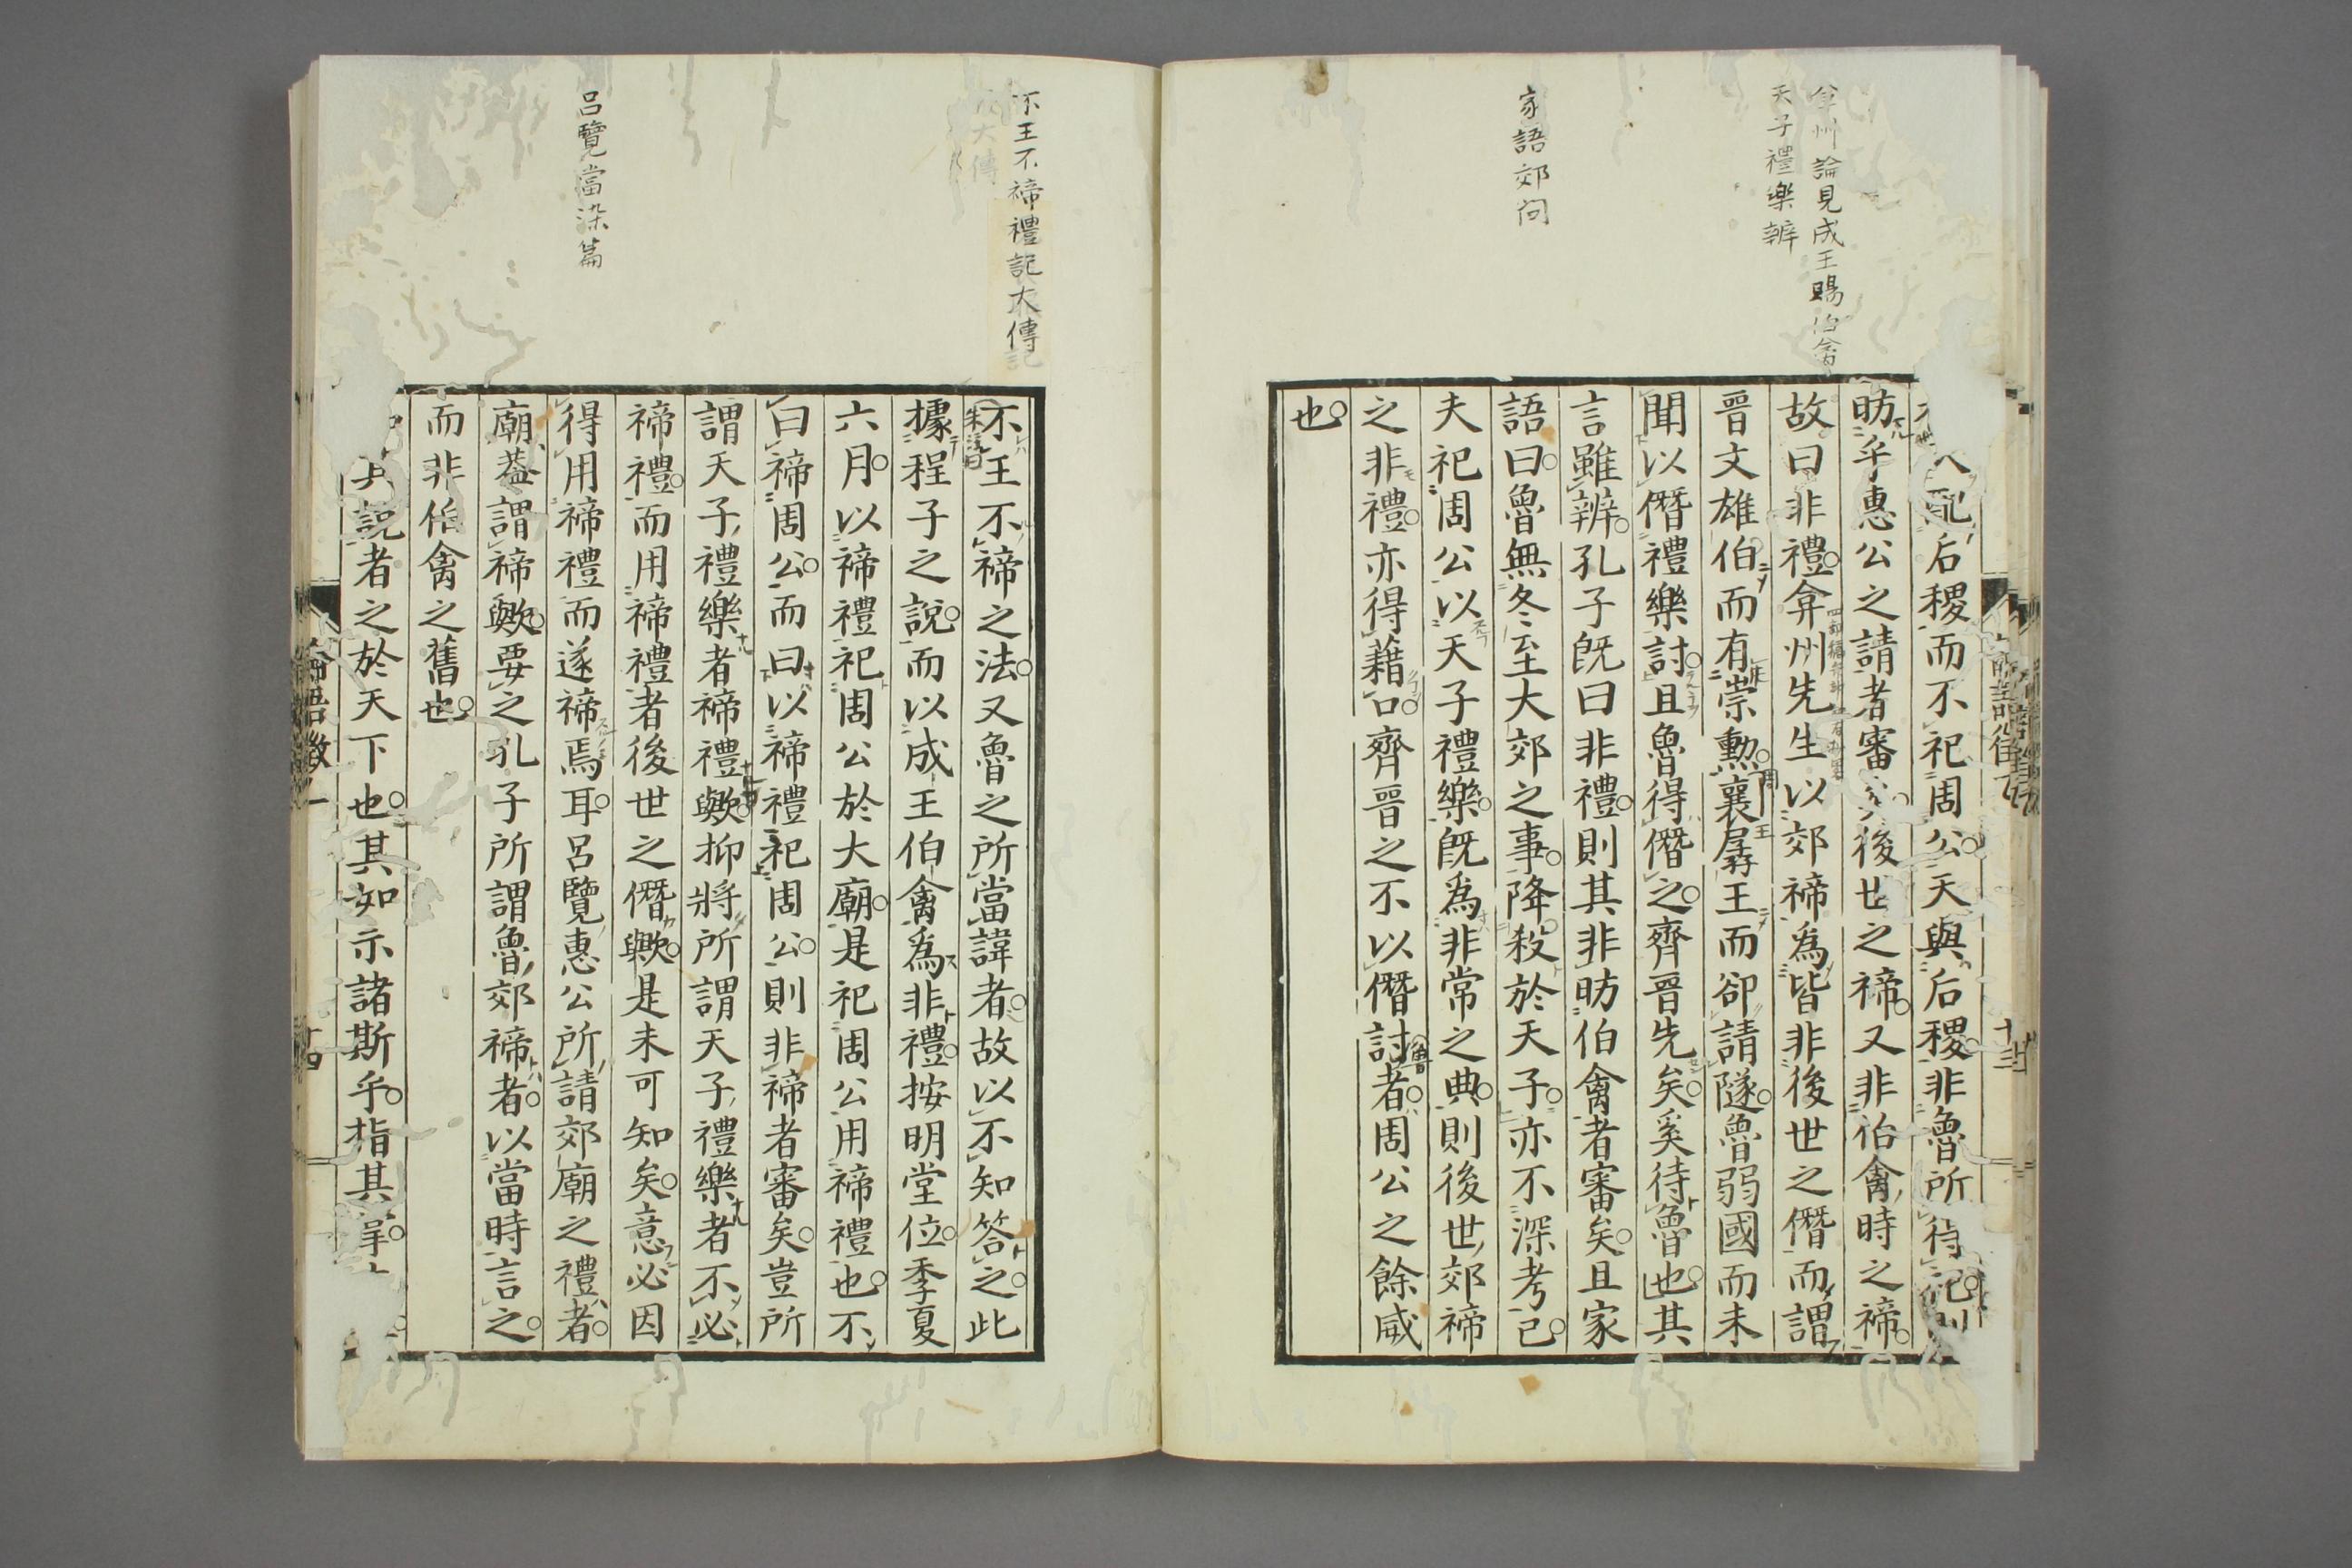 弇州論見成王賜伯禽
天子禮樂辨
家語郊问
配后稷而不祀周公天與后稷非魯所得祀則
昉乎惠公之請者審矣後世之禘又非伯禽時之禘
故曰非禮弇州先生以郊禘爲皆非後世之僭而謂
晉文雄伯而有崇勳襄孱王而卻請隧魯弱國而未
聞以僭禮樂討且魯得僭之齊晉先矣奚待魯也其
言雖辨孔子既曰非禮則其非昉伯禽者審矣且家
語曰魯無冬至大郊之事降殺於天子亦不深考已
夫祀周公以天子禮樂既爲非常之典則後世郊禘
之非禮亦得藉口齊晉之不以僭討者周公之餘威
也
論語徵一
十三
不王不禘禮記大傳
呂覽當染篇
不王不禘之法又魯之所當諱者故以不知答之此
朱註曰
據程子之說而以成王伯禽爲非禮按明堂位季夏
六月以禘禮祀周公於大廟是祀周公用禘禮也不
曰禘周公而曰以禘禮祀周公則非禘者審矣豈所
謂天子禮樂者禘禮歟抑將所謂天子禮樂者不必
禘禮而用禘禮者後世之僭歟是未可知矣意必因
得用禘禮而遂禘焉耳呂覽惠公所請郊廟之禮者
廟蓋謂禘歟要之孔子所謂魯郊禘者以當時言之
而非伯禽之舊也
知其説者之於天下也其如示諸斯乎指其掌
論語徵一
十四